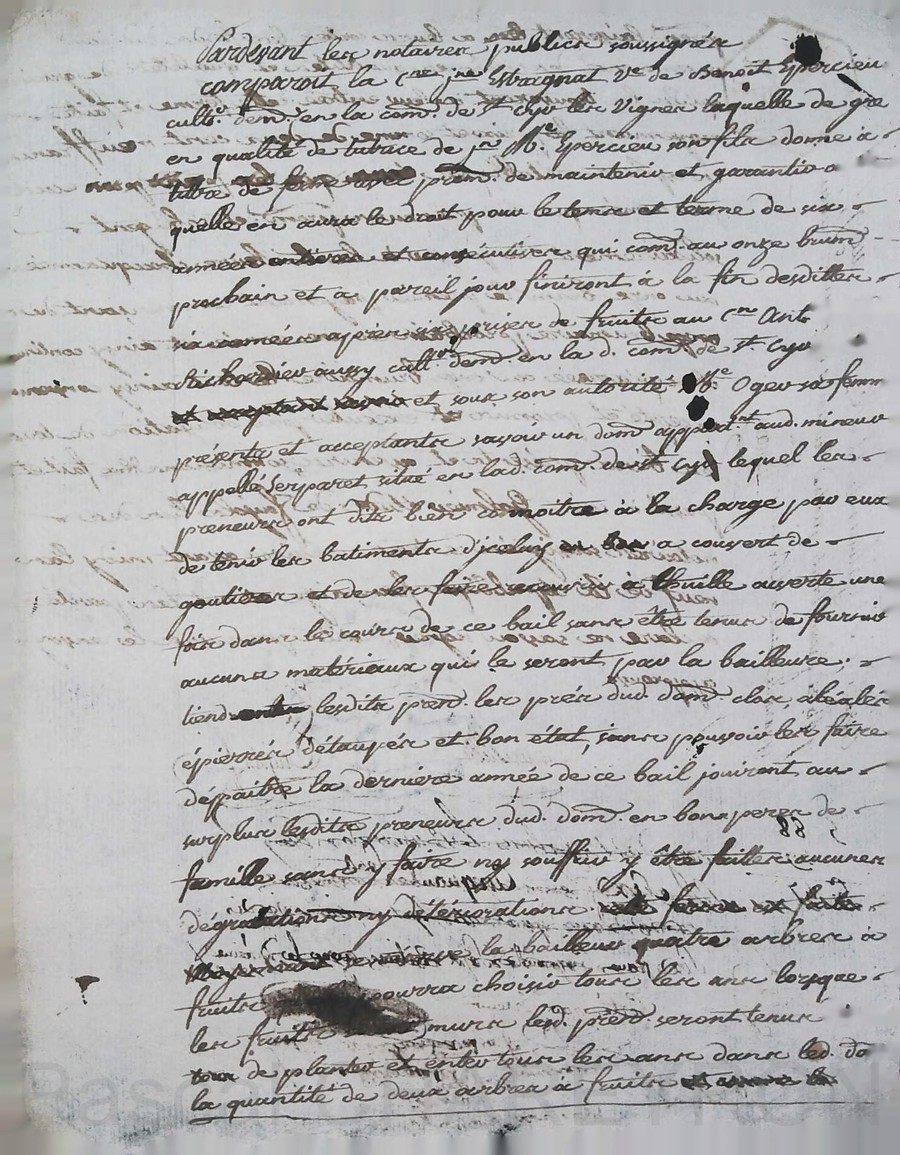 Pardevant les notaires publics soussignés
comparoit la Cne jne Estragnat ve de Benoit Epercieu
cultr. demt. en la com. de St Cyr les Vignes laquelle de gre
en qualité de tutrice de jn Me. Epercieu son fils donne a
titre de ferme avec prom. de maintenir et garantir a
quelle en aura le droit pour le tems et terme de six
années entieres et consécutives qui com. au onze brum
prochain et a pareil jour finiront à la fin desdittes
six années apres six prises de fruits au Cen Ant
aussy cultr. demt. en la d. com. de St. Cyr
et sous son autorité Me. Oger sa femm
présents et acceptants savoir un dom appart.nt aud. mineur
appellé Serparet situé en lad. com. de St Cyr lequel les
preneurs ont dits bien connoitre à la charge par eux
de tenir les batiments d'jceluy a couvert de
goutieres et de les faire recouvrir à thuille ouverte une
fois dans le cours de ce bail sans être tenus de fournir
aucuns matériaux qui le seront par la bailleure.
tiend lesdits pren. les prés dud. dom. clos
épierrés détaupés et bon état, sans pouvoir les faire
dépaitre la derniere année de ce bail jouiront au
surplus lesdits preneurs dud. dom. en bons peres de
famille sans y faire ny souffrir y être faittes aucunes
dégradations ny détériorations
la bailleur quatre arbres à
fruits pourra choisir tous les ans lorsque
les fruits murs lesd. pren. seront tenus
de planter et enter tous les ans dans led. do
la quantité de deux arbres à fruits